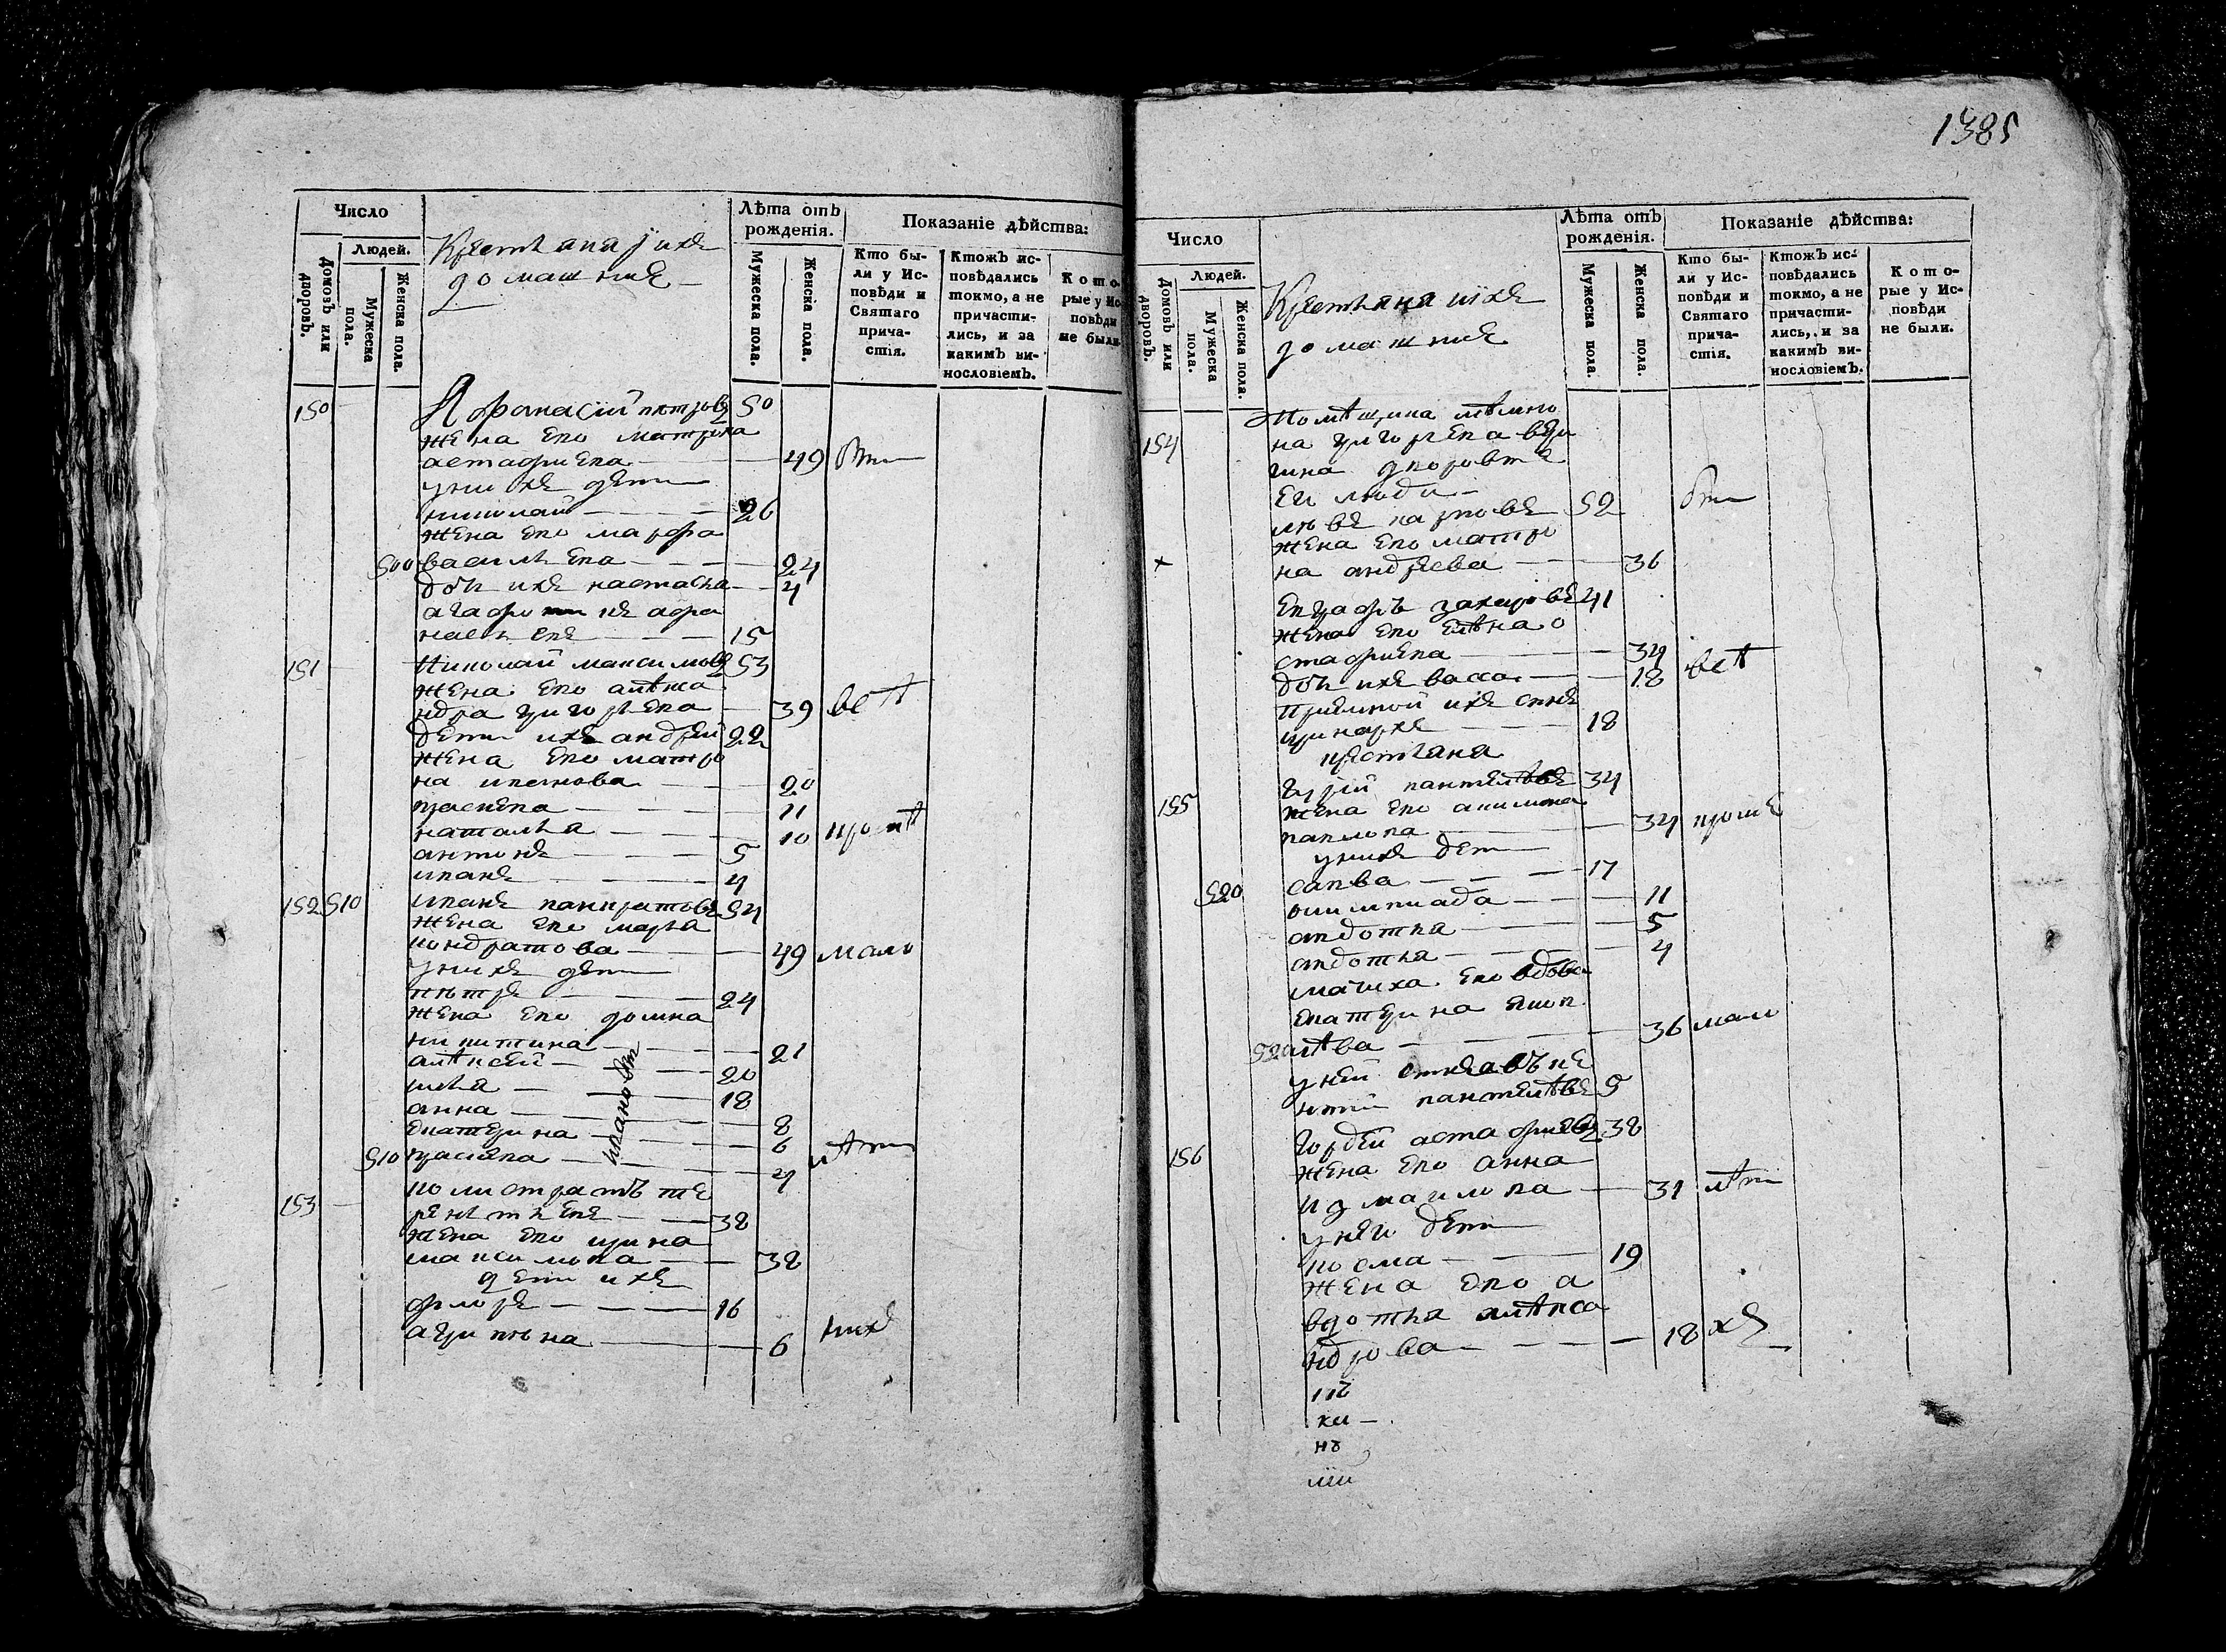 1385
Число
Людей.
Домовъ или дворовъ.
Мужеска пола.
Женска пола.
Крестьяна и ихъ
домашние
Лѣта отъ рожденія.
Мужеска пола.
Женска пола.
Показаніе дѣйства:
Кто были у Исповѣди и Святаго причастія.
Ктожъ исповѣдались токмо, а не причастились, и за какимъ винословіемъ.
Которые у Исповѣди не были.
150 Афонасий петровъ 50
жена ево матрона
астафиева 49
у них дети
николай 26
жена ево марфа
500 васильева 24
дочь ихъ настасья 4
агафоникъ афа
насьевъ 15
151 Николай максимовъ 53
жена ево алѣкса
ндра григорьева 39 всѣ
дети ихъ андрей 22
жена ево матро
на ивановa 20
прасковa 11
наталья 10
антонъ 5
иванъ 4
152 510 иванъ панкратовъ 54
жена ево марья
кондратова 49 мало
у нихъ дети
пѣтръ 24
жена ево домна
никитина 21
алѣксей 20
илья 18
анна 8
екатерина 6 лѣт
510 прасковa 4
153 калистратъ те
рентьевъ 38
жена ево ирина
максимова 38
дети ихъ
флоръ 16
агрипѣна 6 нихъ
Число
Людей.
Домовъ или дворовъ.
Мужеска пола.
Женска пола.
Крестьяна и ихъ
домашние
Лѣта отъ рожденія.
Мужеска пола.
Женска пола.
Показаніе дѣйства:
Кто были у Исповѣди и Святаго причастія.
Ктожъ исповѣдались токмо, а не причастились, и за какимъ винословіемъ.
Которые у Исповѣди не были.
Помѣщика
154 на григорьева
дворовые
еи люди
львъ карповъ 52
жена ево матро
на андреева 36
евграфъ захаровъ 41
жена ево елѣна о
стафиева 34
дочь ихъ васса 18 всѣ
приемной ихъ сынъ
кинархъ 18
крестьяна
гурий пантелѣевъ 34
155 жена ево акилина
павлова 34
у нихъ дети
520 савва 17
олимпиада 11
авдотья 5
авдотья 4
мачиха ево вдова
екатерина яков
520 лѣва 36 мало
у ней сынъ
нтий пантелѣевъ 5
156 гордей астафиевъ 38
жена ево анна
измаилова 31 лѣт
у них дети
косма 19
жена ево а
вдотья алѣкса
ндрова 18 хъ